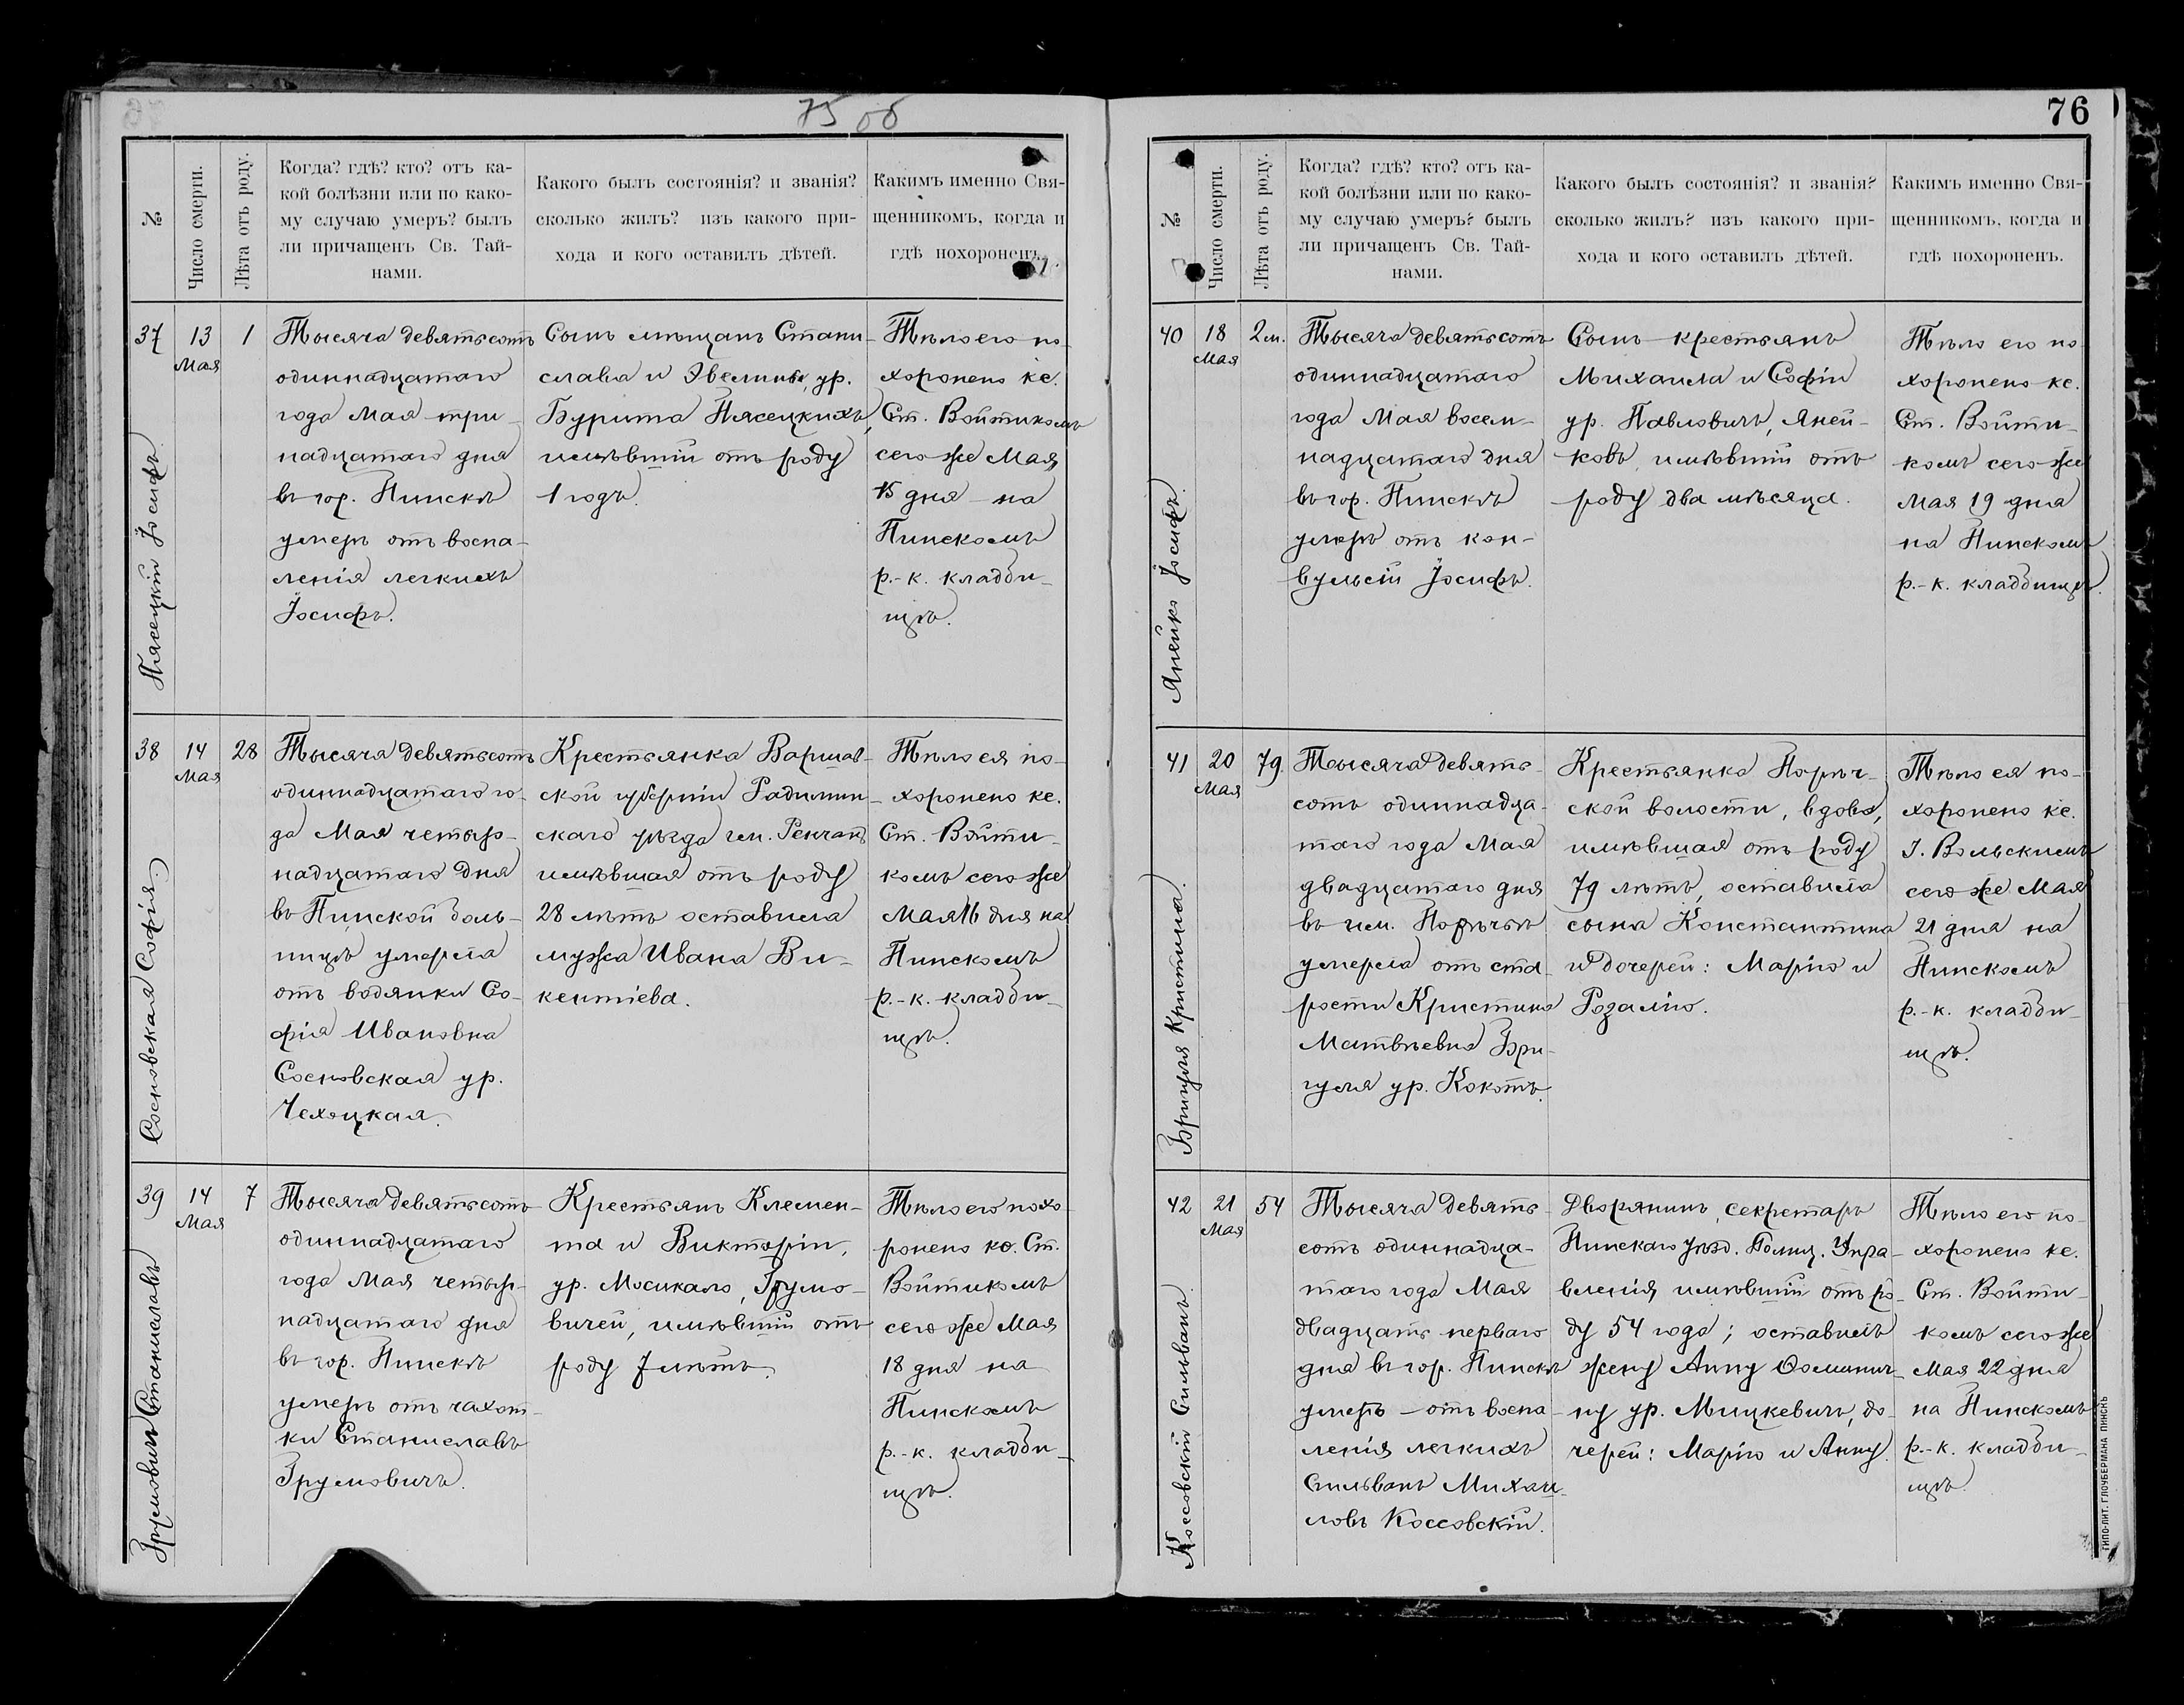 75 об
№
Число смерти.
Лѣта отъ роду.
Когда? гдѣ? кто? отъ ка-
кой болѣзни или по како-
му случаю умеръ? былъ
ли причащенъ Св. Тай-
нами.
Какого былъ состоянія? и званія?
сколько жилъ? изъ какого при-
хода и кого оставилъ дѣтей.
Какимъ именно Свя-
щенникомъ, когда и
гдѣ похороненъ.
37
Пясецкій Іосифъ.
13
Мая
1
Тысяча девятьсотъ
одиннадцатаго
года Мая три-
надцатаго дня
въ гор. Пинскѣ
умеръ отъ воспа-
ленія легкихъ
Іосифъ.
Сынъ мѣщанъ Стани-
слава и Эвелины, ур.
Бурита Пясецкихъ,
имѣвшій отъ роду
1 годъ.
Тѣло его по-
хоронено кс.
Ст. Войтикомъ
сего же Мая
15 дня на
Пинскомъ
р.-к. кладби-
щѣ.
38
Сосновская Софія.
14
Мая
28
Тысяча девятьсотъ
одиннадцатаго го-
да Мая четыр-
надцатаго дня
въ Пинской боль-
ницѣ умерла
отъ водянки Со-
фія Ивановна
Сосновская ур.
Чехоцкая.
Крестьянка Варшав-
ской губерніи Радимин-
скаго уѣзда гм.
имѣвшая отъ роду
28 лѣтъ оставила
мужа Ивана Ви-
кентіева.
Тѣло ея по-
хоронено кс.
Ст. Войти-
комъ сего же
Мая 16 дня на
Пинскомъ
р.-к. кладби-
щѣ.
39
Грумовичъ Станиславъ
14
Мая
7
Тысяча девятьсотъ
одиннадцатаго
года Мая четыр-
надцатаго дня
въ гор. Пинскѣ
умеръ отъ чахот-
ки Станиславъ
Грумовичъ.
Крестьянъ Клемен-
та и Викторіи,
ур. Мосикало, Грумо-
вичей, имѣвшій отъ
роду 7 лѣтъ.
Тѣло его похо-
ронено кс. Ст.
Войтикомъ
сего же Мая
18 дня на
Пинскомъ
р.-к. кладби-
щѣ.
76
№
Число смерти.
Лѣта отъ роду.
Когда? гдѣ? кто? отъ ка-
кой болѣзни или по како-
му случаю умеръ? былъ
ли причащенъ Св. Тай-
нами.
Какого былъ состоянія? и званія?
сколько жилъ? изъ какого при-
хода и кого оставилъ дѣтей.
Какимъ именно Свя-
щенникомъ, когда и
гдѣ похороненъ.
40
Янейко Іосифъ.
18
Мая
2 м.
Тысяча девятьсотъ
одиннадцатаго
года Мая восем-
надцатаго дня
въ гор. Пинскѣ
умеръ отъ кон-
вульсій Іосифъ.
Сынъ крестьянъ
Михаила и Софіи
ур. Павловичъ, Яней-
ковъ, имѣвшій отъ
роду два мѣсяца.
Тѣло его по-
хоронено кс.
Ст. Войти-
комъ сего же
Мая 19 дня
на Пинскомъ
р.-к. кладбищѣ.
41
Бригуля Кристина.
20
Мая
79.
Тысяча девять-
сотъ одиннадца-
таго года Мая
двадцатаго дня
въ им. Порѣчьѣ
умерла отъ ста-
рости Кристина
Матвѣевна Бри-
гуля ур. Кокотъ.
Крестьянка Порѣч-
ской волости, вдова,
имѣвшая отъ роду
79 лѣтъ, оставила
сына Константина
и дочерей: Марію и
Розалію.
Тѣло ея по-
хоронено кс.
І. Вольскимъ
сего же Мая
21 дня на
Пинскомъ
р.-к. кладби-
щѣ.
42
Коссовскій Сильванъ.
21
Мая
54
Тысяча девять-
сотъ одиннадца-
таго года Мая
двадцать перваго
дня въ гор. Пинскѣ
умеръ отъ воспа-
ленія легкихъ
Сильванъ Михаи-
ловъ Коссовскій.
Дворянинъ, секретарь
Пинскаго уѣзд. Полиц. Упра-
вленія, имѣвшій отъ ро-
ду 54 года; оставилъ
жену Анну Фоминич-
ну ур. Мицкевичъ, до-
черей: Марію и Анну.
Тѣло его по-
хоронено кс.
Ст. Войти-
комъ сего же
Мая 22 дня
на Пинскомъ
р.-к. кладби-
щѣ.
ТИПО-ЛИТ. ГЛОУБЕРМАНА ПИНСКЪ